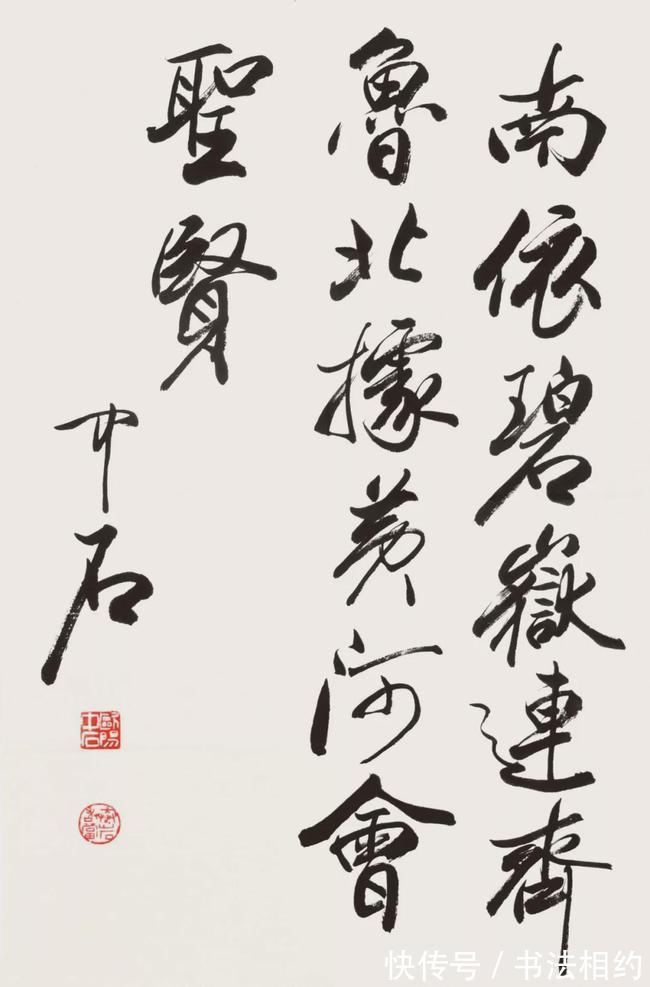 南依碧嶽連齊
魯北據黃河會
聖賢
中石
歐陽中石
快传号／书法相约